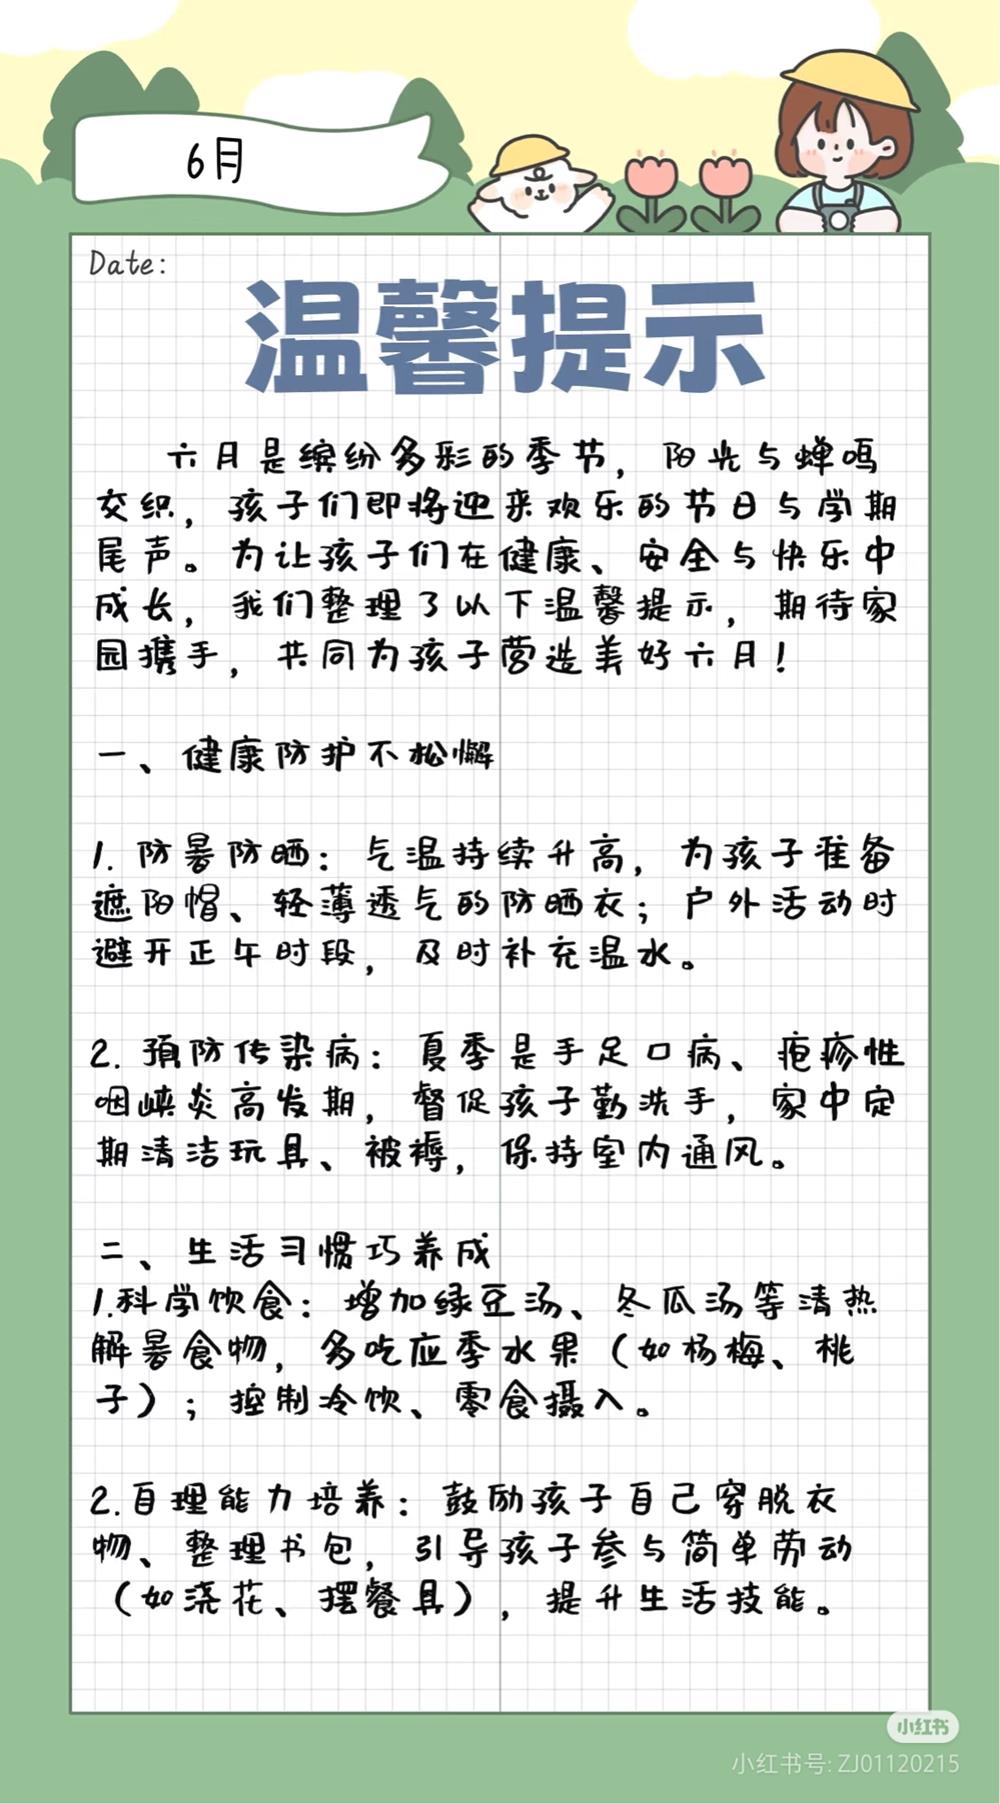 6月
Date:
温馨提示
六月是缤纷多彩的季节，阳光与蝉鸣
交织，孩子们即将迎来欢乐的节日与学期
尾声。为让孩子们在健康、安全与快乐中
成长，我们整理了以下温馨提示，期待家
园携手，共同为孩子营造美好六月！
一、健康防护不松懈
1. 防暑防晒：气温持续升高，为孩子准备
遮阳帽、轻薄透气的防晒衣；户外活动时
避开正午时段，及时补充温水。
2. 预防传染病：夏季是手足口病、疱疹性
咽峡炎高发期，督促孩子勤洗手，家中定
期清洁玩具、被褥，保持室内通风。
二、生活习惯巧养成
1.科学饮食：增加绿豆汤、冬瓜汤等清热
解暑食物，多吃应季水果（如杨梅、桃
子）；控制冷饮、零食摄入。
2.自理能力培养：鼓励孩子自己穿脱衣
物、整理书包，引导孩子参与简单劳动
（如浇花、摆餐具），提升生活技能。
小红书
小红书号: ZJ01120215